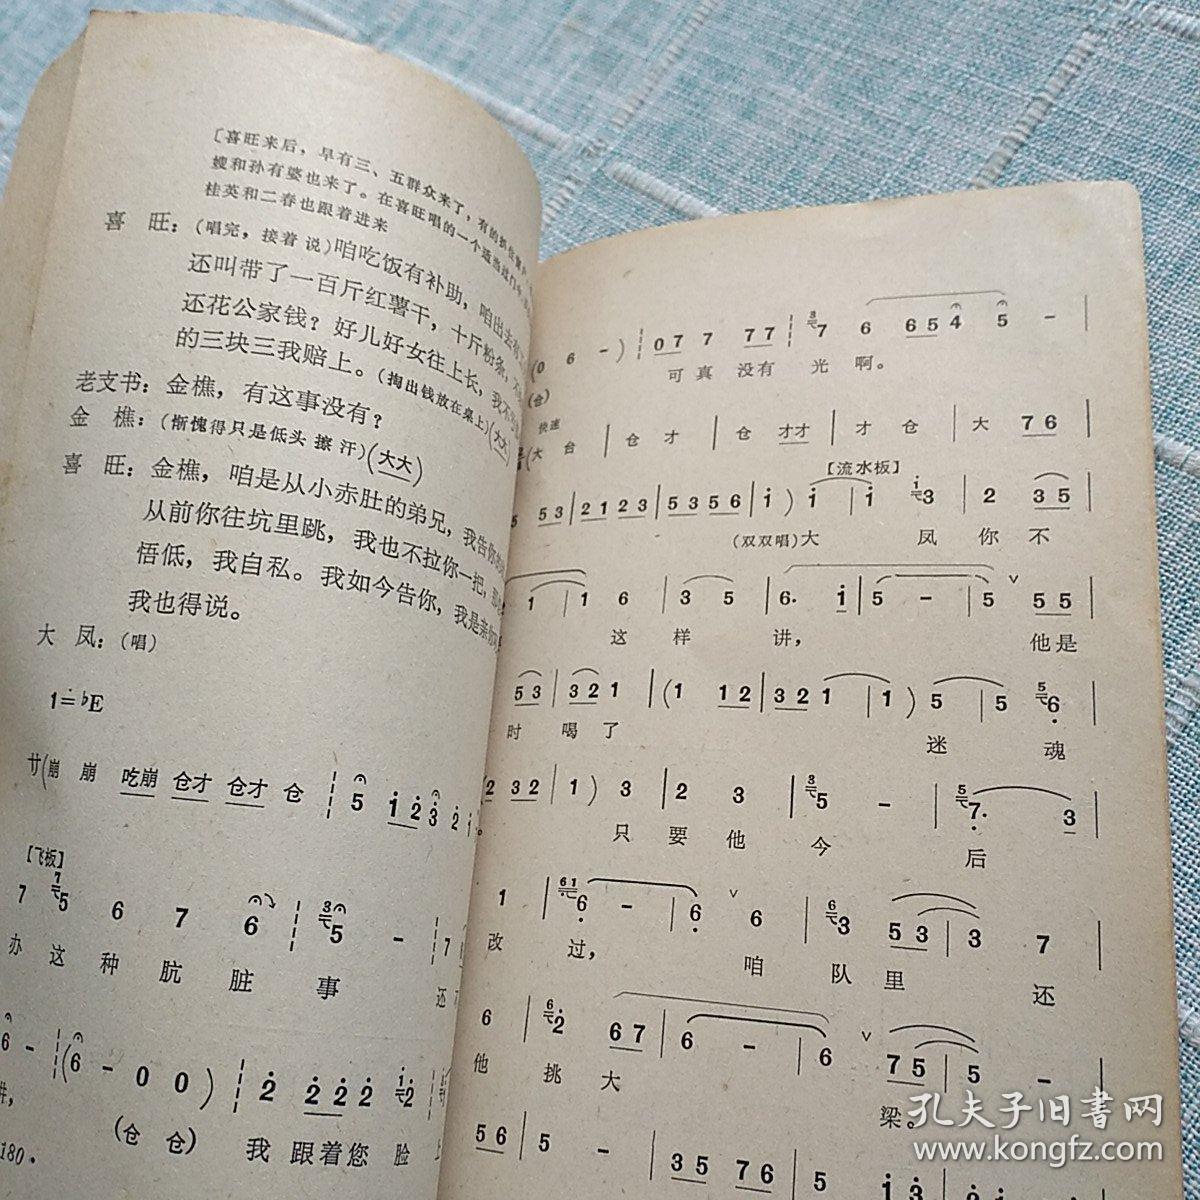 〔喜旺来后，早有三、五群众来了，有的
嫂和孙有婆也来了。在喜旺唱的一个适当过门
桂英和二春也跟着进来
喜 旺：（唱完，接着 说）咱吃饭有补助，咱出去
还叫带了一百斤红薯干，十斤粉条，
还花公家钱？好儿好女往上长，我不
的三块三我赔上。（掏出钱放在桌上）（大大）
老支书：金樵，有这事没有？
金 樵：（惭愧得只是低头 擦 汗）（大大）
喜 旺：金樵，咱是从小赤肚的弟兄，我告你
从前你往坑里跳，我也不拉你一把，那
悟低，我自私。我如今告你，我是亲你
我也得说。
大 凤：（唱）
1=♭E
廿（崩 崩 吃崩 仓才 仓才 仓 5 1 2 3 2
【飞板】
7 5 6 7 6 5 - 7
办 这 种 肮 脏 事 还
6 - （6 - 0 0） 2 2 2 2 2
讲， （仓 仓） 我 跟着您 脸 上
180·
（0 6 -） 0 7 7 7 7 7 6 6 5 4 5 -
（仓） 可 真 没有 光 啊。
快速
大 台 | 仓 才 | 仓 才才 | 才 仓 | 大 7 6
【流水板】
5 5 3 | 2 1 2 3 | 5 3 5 6 | 1） 1 | 1 3 | 2 3 5
（双双唱）大 凤 你 不
1 | 1 6 | 3 5 | 6· 1 | 5 - | 5 5 5
这 样 讲， 他是
5 3 | 3 2 1 |（1 1 2 | 3 2 1 | 1）5 | 5 6
时 喝 了 迷 魂
2 3 2 | 1）3 | 2 3 | 5 - | 7· 3
只 要 他 今 后
1 | 6 - | 6 6 | 3 5 3 | 3 7
改 过， 咱 队 里 还
6 | 2 6 7 | 6 - | 6 7 5 | 5 -
他 挑 大 梁。
5 6 | 5 - | 3 5 7 6 | 5
孔夫子旧书网
www.kongfz.com